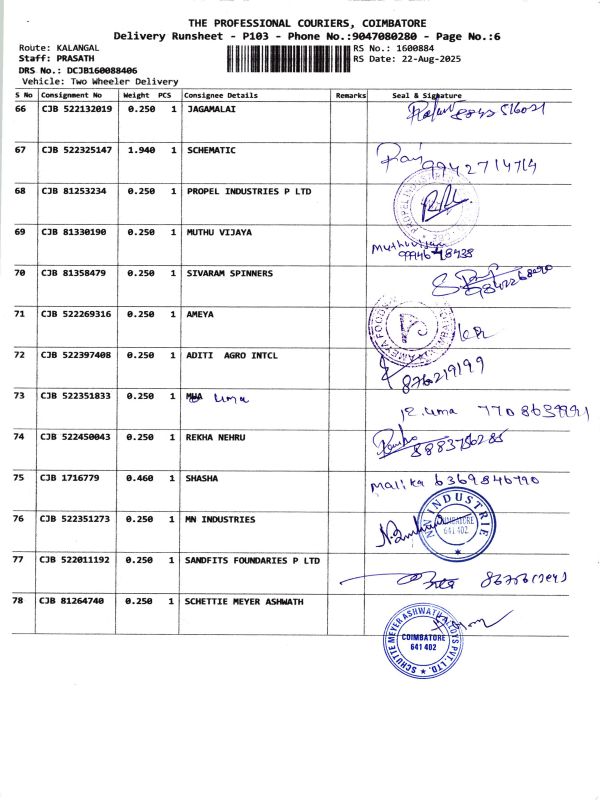 THE PROFESSIONAL COURIERS, COIMBATORE
Delivery Runsheet - P103 - Phone No.:9047080280 - Page No.:6
Route: KALANGAL RS No.: 1600884
Staff: PRASATH RS Date: 22-Aug-2025
DRS No.: DCJB160088406
Vehicle: Two Wheeler Delivery
S No Consignment No Weight PCS Consignee Details Remarks Seal & Signature
66 CJB 522132019 0.250 1 JAGAMALAI
67 CJB 522325147 1.940 1 SCHEMATIC Raj 9942714714
68 CJB 81253234 0.250 1 PROPEL INDUSTRIES P LTD PROPEL INDUSTRI
69 CJB 81330190 0.250 1 MUTHU VIJAYA Muthuvijaya
70 CJB 81358479 0.250 1 SIVARAM SPINNERS
71 CJB 522269316 0.250 1 AMEYA AMEYA FOODS
72 CJB 522397408 0.250 1 ADITI AGRO INTCL 876219199
73 CJB 522351833 0.250 1 uma K. uma
74 CJB 522450043 0.250 1 REKHA NEHRU
75 CJB 1716779 0.460 1 SHASHA Malika 6369846790
76 CJB 522351273 0.250 1 MN INDUSTRIES MN INDUSTRIE COIMBATORE 641 402
77 CJB 522011192 0.250 1 SANDFITS FOUNDARIES P LTD
78 CJB 81264740 0.250 1 SCHETTIE MEYER ASHWATH SCHUTTE MEYER ASHWATH PVT. LTD. COIMBATORE 641 402